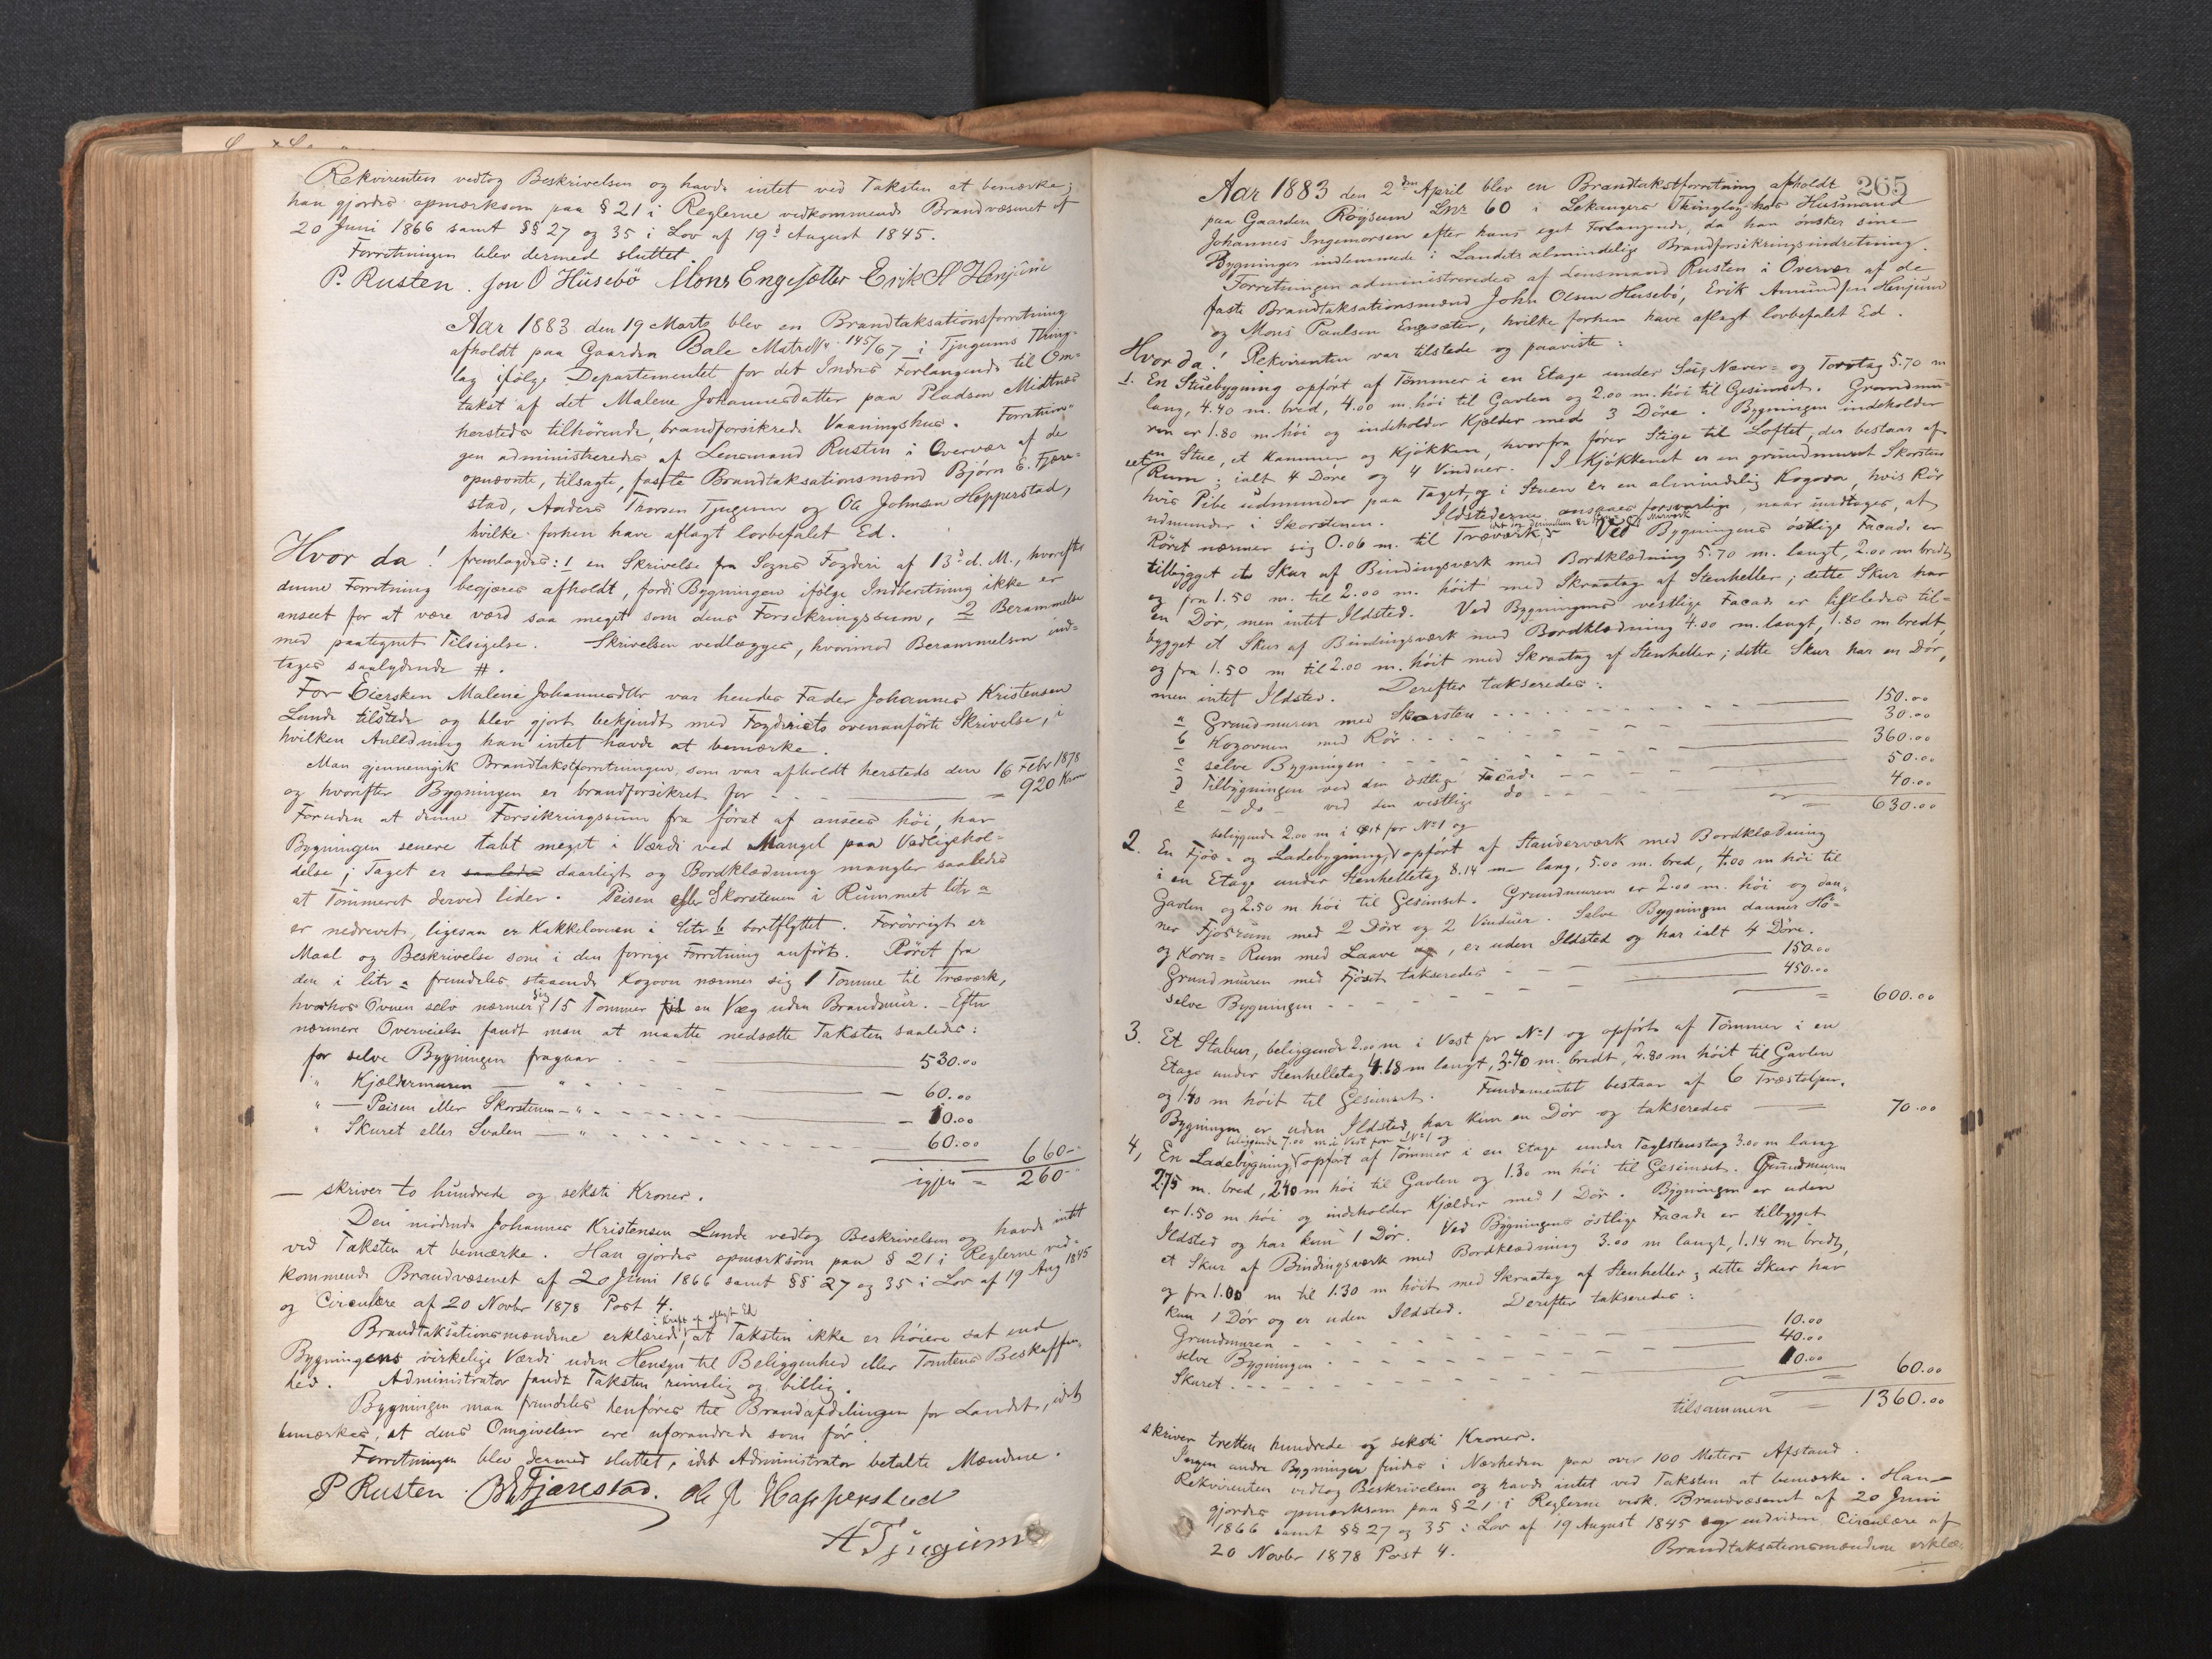 Rekvirenten vedtog Beskrivelsen og havde intet ved Taksten at bemærke;
han gjordes opmærksom paa § 21 i Reglerne vedkommende Brandvæsenet af
20 Juni 1866 samt §§ 27 og 35 i Lov af 19de August 1845.
Forretningen blev dermed sluttet.
P. Rusten. Jon O Husebö Mons Engesætter Erik A Henjum
Aar 1883 den 19 Marts blev en Brandtaksationsforretning
afholdt paa Gaarden Bale Matr No 145/67 i Tjugums Thing-
lag ifølge Departementet for det Indres Forlangende til Om-
takst af det Malene Johannesdatter paa Pladsen Midtnæs
hersteds tilhörende, brandforsikrede Vaaningshus. Forretnin-
gen administreredes af Lensmand Rusten i Overvær af de
opnævnte, tilsagte, faste Brandtaksationsmænd Björn E. Fjære-
stad, Anders Thorsen Tjugum og Ole Johnsen Hopperstad,
hvilke forhen have aflagt lovbefalet Ed.
Hvor da! fremlagdes: 1 en Skrivelse fra Sogns Fogderi af 13de d. M., hvorefter
denne Forretning begjæres afholdt, fordi Bygningen ifölge Indberetning ikke er
anseet for at være værd saa meget som dens Forsikringssum, 2 Berammelse
med paategnet Tilsigelse. Skrivelsen vedlægges, hvorimod Berammelsen ind-
tages saalydende #.
For Eiersken Malene Johannesdtr var hendes Fader Johannes Kristensen
Lunde tilstede og blev gjort bekjendt med Fogderiets ovenanförte Skrivelse, i
hvilken Anledning han intet havde at bemærke.
Man gjennemgik Brandtakstforretningen, som var afholdt hersteds den 16 Febr 1878
og hvorefter Bygningen er brandforsikret for = 920 Kroner
Foruden at denne Forsikringssum fra först af ansees höi, har
Bygningen senere tabt meget i Værdi ved Mangel paa Vedligehol-
delse; Taget er saaledes daarligt og Bordklædning mangler saaledes
at Tömmeret derved lider. Peisen eller Skorstenen i Rummet litr a
er nedrevet, ligesaa er Kakkelovnen i litr b bortflyttet. Forövrigt er
Maal og Beskrivelse som i den forrige Forretning anfört. Röret fra
den i litr c fremdeles staaende Kogovn nærmer sig 1 Tomme til Træværk,
hvorhos Ovnen selv nærmer sig 15 Tommer til en Væg uden Brandmur. - Efter
nærmere Overveielse fandt man at maatte nedsætte Taksten saaledes:
for selve Bygningen fragaar 530.00
" Kjældermuren — " 60.00
" — Peisen eller Skorstenen — " 10.00
" Skuret eller Svalen — " 60.00 660-
igjen = 260-
— skriver to hundrede og seksti Kroner.
Den mödende Johannes Kristensen Lunde vedtog Beskrivelsen og havde intet
ved Taksten at bemærke. Han gjordes opmærksom paa § 21 i Reglerne ved-
kommende Brandvæsenet af 20 Juni 1866 samt §§ 27 og 35 i Lov af 19 Aug 1845
og Circulære af 20 Novbr 1878 Post 4.
i Kraft af aflagt Ed
Brandtaksationsmændene erklærede, at Taksten ikke er höiere sat end
Bygningens virkelige Værdi uden Hensyn til Beliggenhed eller Tomtens Beskaffen-
hed. Administrator fandt Taksten rimelig og billig.
Bygningen maa fremdeles henföres til Brandafdelingen for Landet, idet
bemærkes, at dens Omgivelser ere uforandrede som för.
Forretningen blev dermed sluttet, idet Administrator betalte Mændene.
P Rusten. BE Fjærestad. Ole J Hopperstad
A Tjugum
265
Aar 1883 den 2den April blev en Brandtakstforretning afholdt
paa Gaarden Röysum Lnr 60 i Lekangers Thinglag hos Husmand
Johannes Ingemorsen efter hans eget Forlangende, da han önsker sine
Bygninger indlemmede i Landets almindelige Brandforsikringsindretning.
Forretningen administreredes af Lensmand Rusten i Overvær af de
faste Brandtaksationsmænd John Olsen Husebö, Erik Amundsen Henjum
og Mons Paulsen Engesæter, hvilke forhen have aflagt lovbefalet Ed.
Hvor da! Rekvirenten var tilstede og paaviste:
1. En Stuebygning opfört af Tömmer i en Etage under Næver- og Torvtag 5.70 m
lang, 4.40 m. bred, 4.00 m. höi til Gavlen og 2.00 m. höi til Gesimset. Grundmu-
ren er 1.80 m höi og indeholder Kjælder med 3 Döre. Bygningen indeholder
en Stue, et Kammer og Kjökken, hvorfra förer Stige til Loftet, der bestaar af
eet Rum; ialt 4 Döre og 4 Vinduer. I Kjökkenet er en grundmuret Skorsten
hvis Pibe udmunder paa Taget, og i Stuen er en almindelig Kogovn, hvis Rör
udmunder i Skorstenen. Ildstederne ansaaes forsvarlige, naar undtages, at
Röret nærmer sig 0.06 m. til Træværk. Ved Bygningens östlige Facade er
tilbygget et Skur af Bindingsværk med Bordklædning 5.70 m. langt, 2.00 m bredt,
og fra 1.50 m. til 2.00 m. höit med Skraatag af Stenheller; dette Skur har
en Dör, men intet Ildsted. Ved Bygningens vestlige Facade er ligeledes til-
bygget et Skur af Bindingsværk med Bordklædning 4.00 m. langt, 1.80 m bredt,
og fra 1.50 m til 2.00 m. höit med Skraatag af Stenheller; dette Skur har en Dör,
men intet Ildsted. Derefter takseredes:
a Grundmuren med Skorsten 150.00
b Kogovnen med Rör 30.00
c selve Bygningen 360.00
d Tilbygningen ved den östlige Facade 50.00
e - do - ved den vestlige do 40.00
= 630.00
beliggende 2.00 m i Öst for No 1 og
2. En Fjös- og Ladebygning, opfört af Stavdværk med Bordklædning
i en Etage under Stenhelletag 8.14 m lang, 5.00 m. bred, 4.00 m höi til
Gavlen og 2.50 m höi til Gesimset. Grundmuren er 2.00 m. höi og dan-
ner Fjösrum med 2 Döre og 2 Vinduer. Selve Bygningen danner Hö-
og Korn-Rum med Laave, er uden Ildsted og har ialt 4 Döre.
Grundmuren med Fjöset takseredes 150.00
selve Bygningen 450.00
= 600.00
3. Et Stabur, beliggende 2.00 m i Vest for No 1 og opfört af Tömmer i en
Etage under Stenhelletag 4.18 m langt, 3.40 m. bredt, 2.80 m höit til Gavlen
og 1.40 m höit til Gesimset. Fundamentet bestaar af 6 Træstolper.
Bygningen er uden Ildsted, har kun en Dör og takseredes 70.00
beliggende 7.00 m i Vest for No 1 og
4, En Ladebygning, opfört af Tömmer i en Etage under Taglstenstag 3.00 m lang
2.75 m. bred, 2.40 m höi til Gavlen og 1.30 m höi til Gesimset. Grundmuren
er 1.50 m höi og indeholder Kjælder med 1 Dör. Bygningen er uden
Ildsted og har kun 1 Dör. Ved Bygningens östlige Facade er tilbygget
et Skur af Bindingsværk med Bordklædning 3.00 m langt, 1.14 m bredt,
og fra 1.00 m til 1.30 m höit med Skraatag af Stenheller; dette Skur har
kun 1 Dör og er uden Ildsted. Derefter takseredes:
Grundmuren 10.00
selve Bygningen 40.00
Skuret 10.00
= 60.00
tilsammen = 1360.00
skriver tretten hundrede og seksti Kroner.
Ingen andre Bygninger findes i Nærheden paa over 100 Meters Afstand.
Rekvirenten vedtog Beskrivelsen og havde intet ved Taksten at bemærke. Han
gjordes opmærksom paa § 21 i Reglerne vedk. Brandvæsenet af 20 Juni
1866 samt §§ 27 og 35 i Lov af 19 August 1845 og endvidere Circulære af
20 Novbr 1878 Post 4. Brandtaksationsmændene erklæ-